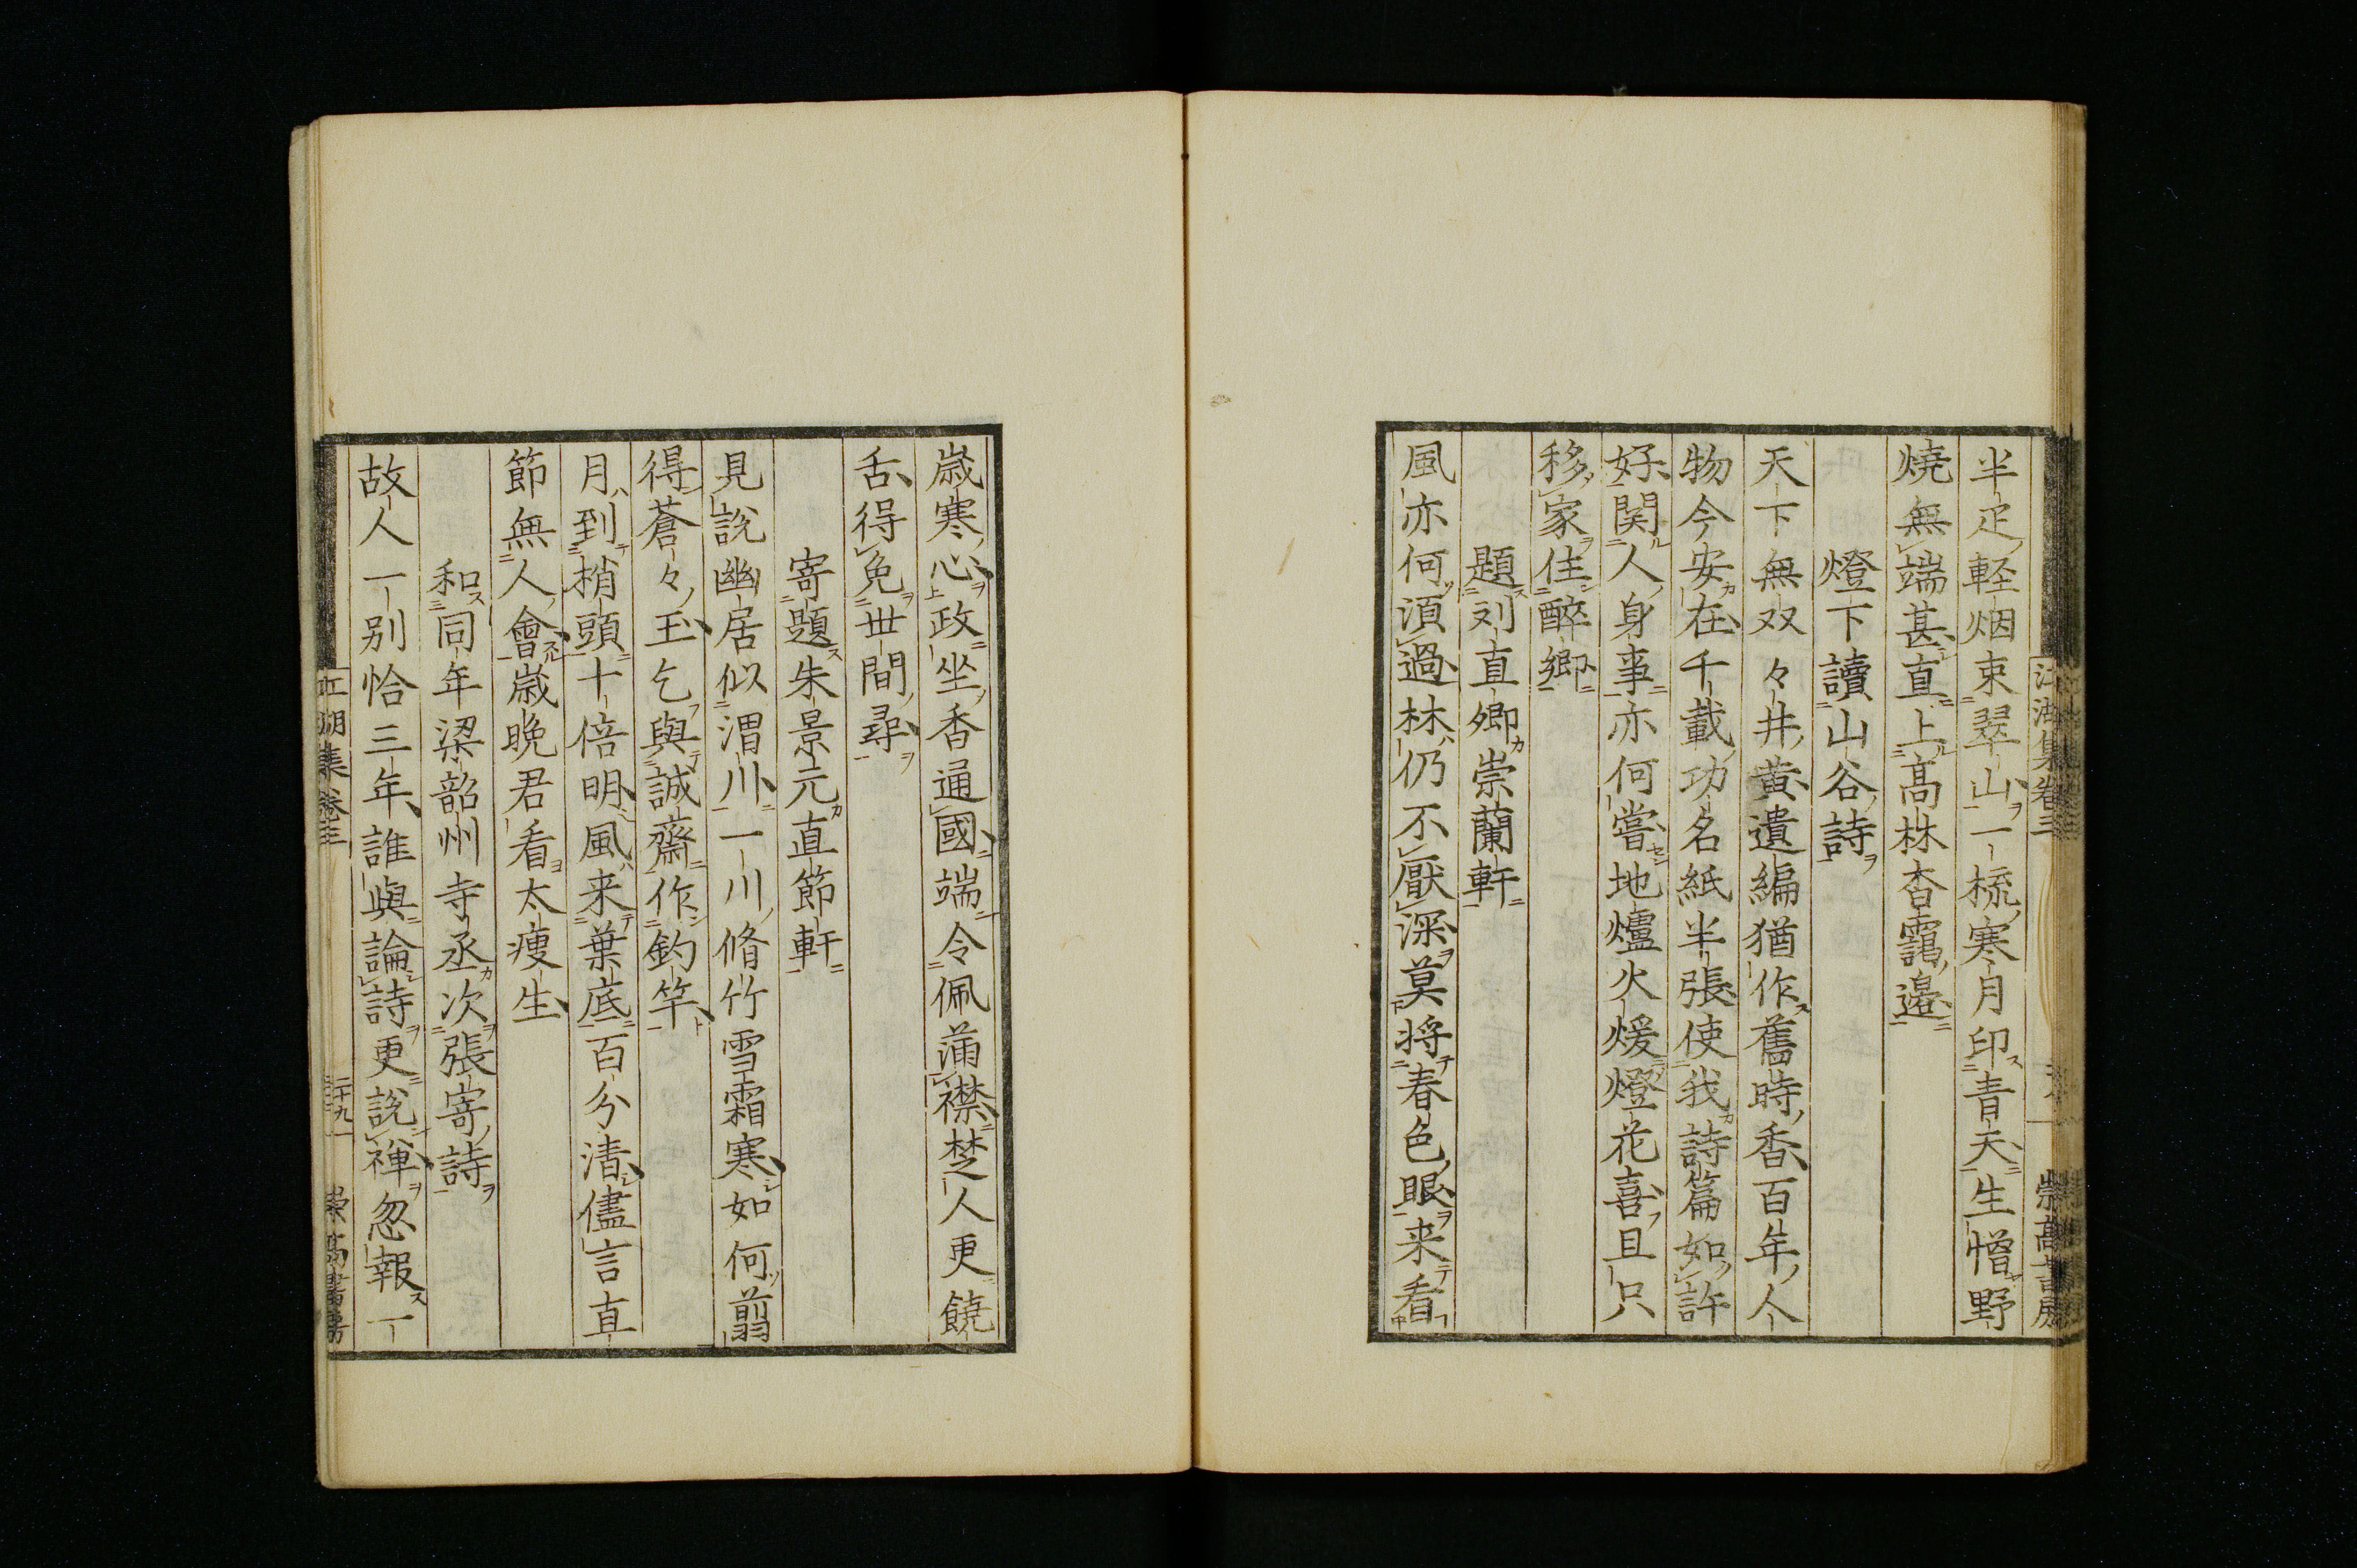 半疋軽烟束翠山一梳寒月印青天生憎野
燒無端甚直上髙林杳靄邉
燈下讀山谷詩
天下無双々井黄遺編猶作舊時香百年人
物今安在千載功名紙半張使我詩篇如許
好関人身事亦何嘗地爐火煖燈花喜且只
移家住醉鄉
題刘直卿崇蘭軒
風亦何須過林仍不厭深莫将春色眼来看
歲寒心政坐香通國端令佩滿襟楚人更饒
舌得免世間尋
寄題朱景元直節軒
見說幽居似渭川一川脩竹雪霜寒如何翦
得蒼々玉乞與誠齋作釣竿
月到梢頭十倍明風来葉底百分清儘言直
節無人會歲晚君看太瘦生
和同年梁韶州寺丞次張寄詩
故人一别恰三年誰與論詩更說禅忽報一
江湖集卷三
二十九
崇髙書房